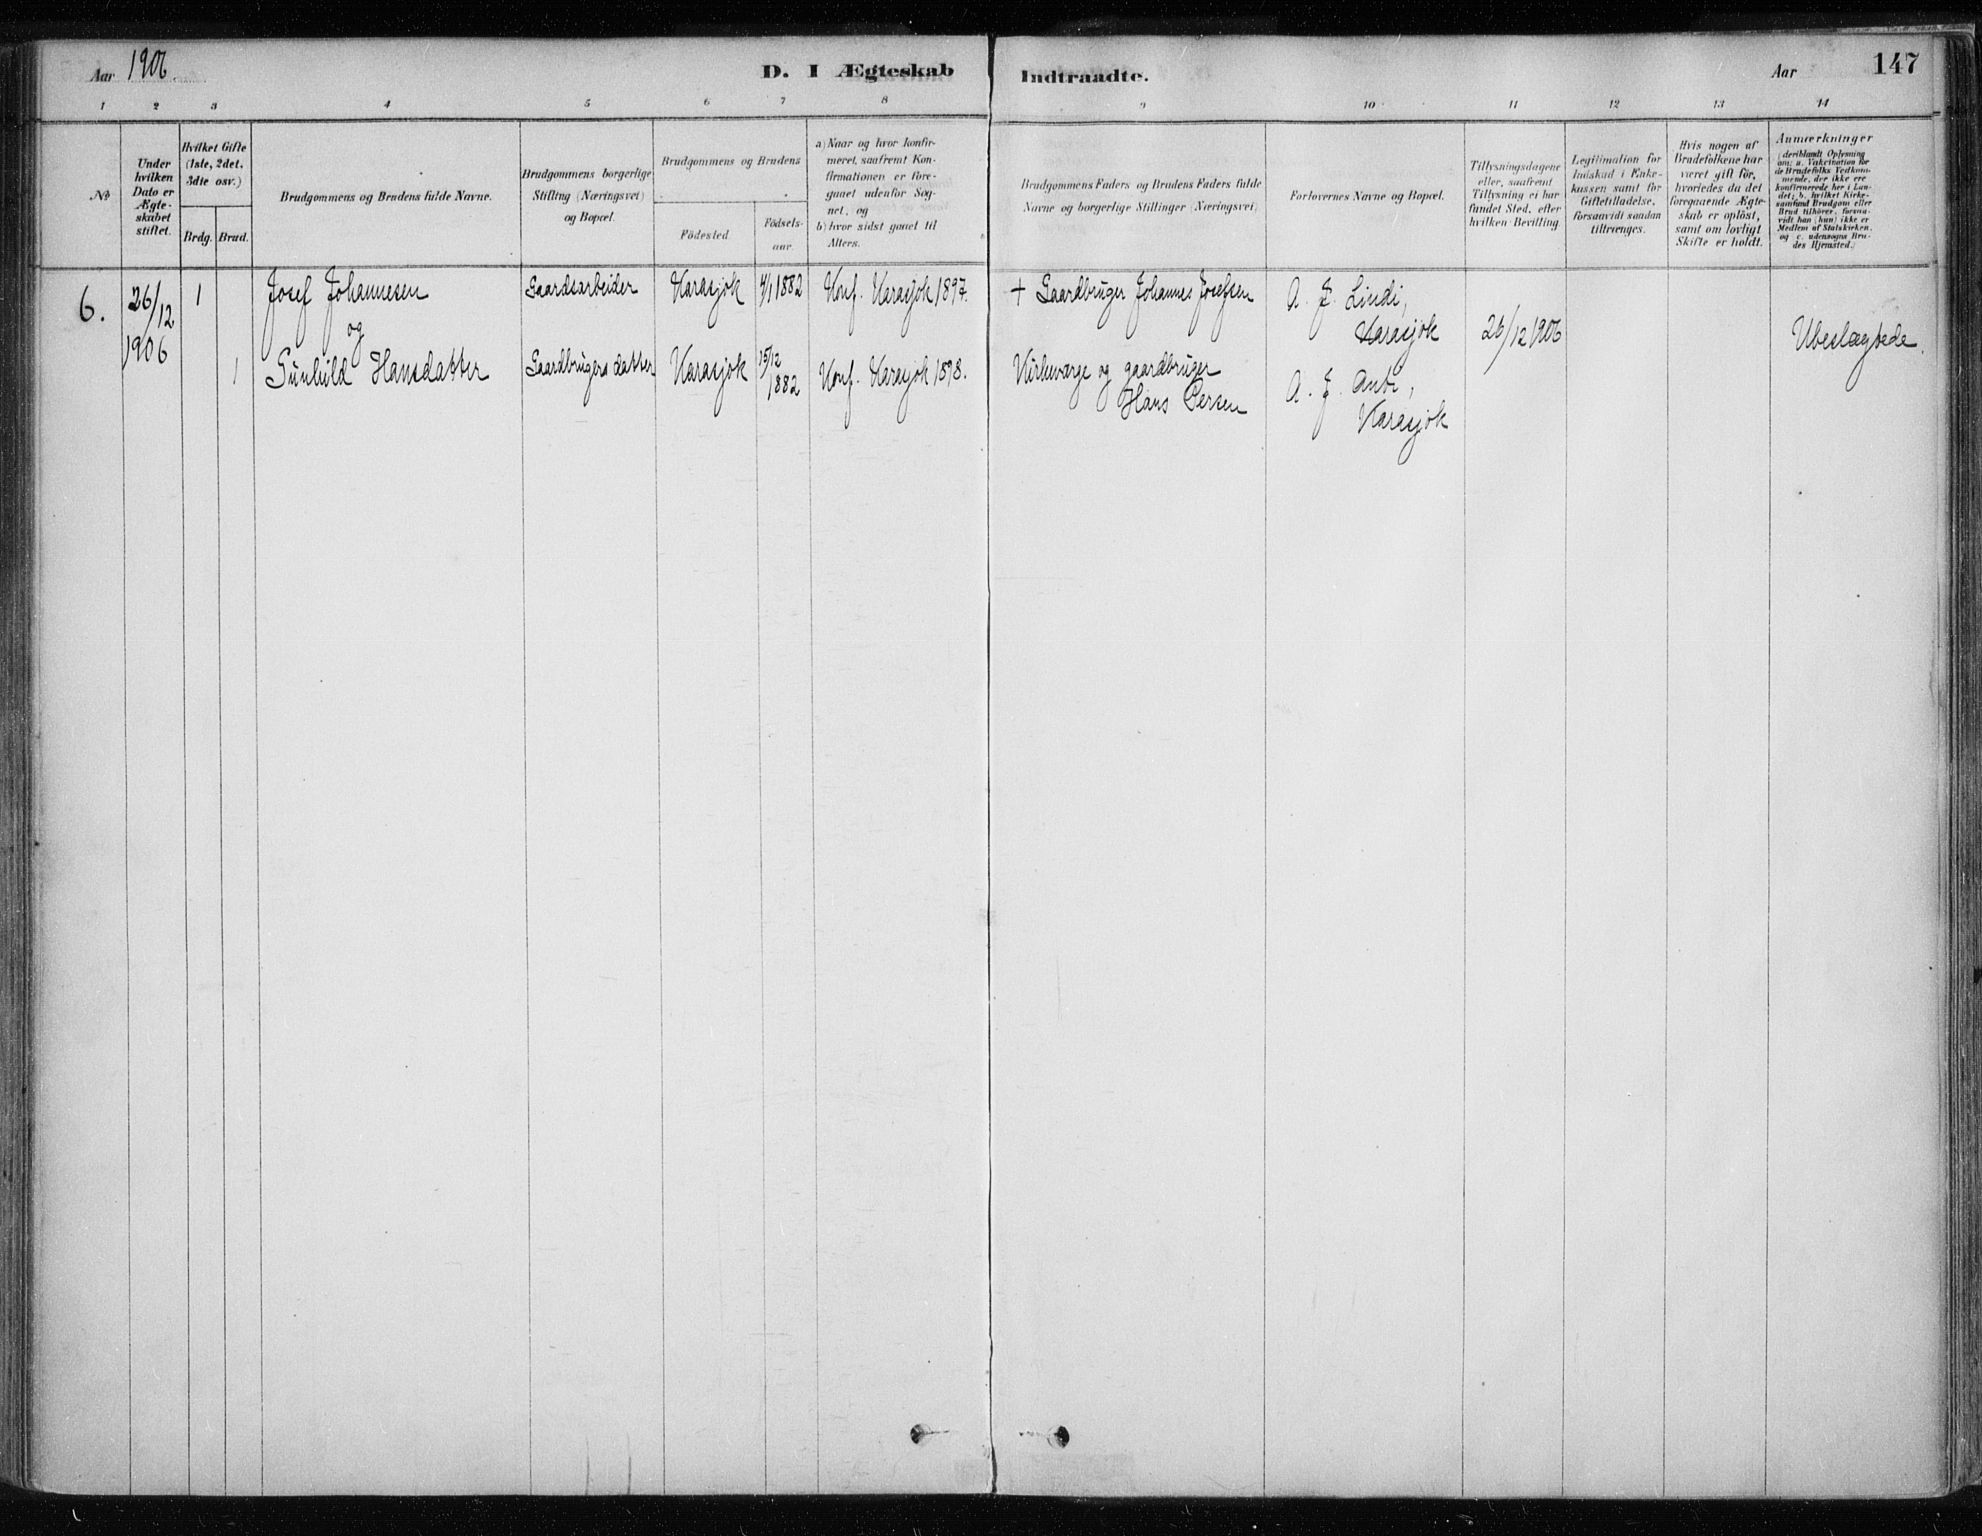 Aar 1906.
D. I Ægteskab Indtraadte.
Aar
147
1 2 3 4 5 6 7 8 9 10 11 12 13 14
№
Under hvilken Dato er Ægte-skabet stiftet.
Hvilket Gifte (1ste, 2det, 3die osv.)
Brdg. Brud.
Brudgommens og Brudens fulde Navne.
Brudgommens borgerlige Stilling (Næringsvei) og Bopæl.
Brudgommens og Brudens
Födested
Födsels-aar.
a) Naar og hvor konfir-meret, saafremt Kon-firmationen er fore-gaaet udenfor Sog-net, og
b) hvor sidst gaaet til Alters.
Brudgommens Faders og Brudens Faders fulde Navne og borgerlige Stillinger (Næringsvei)
Forlovernes Navne og Bopæl.
Tillysningsdagene eller, saafremt Tillysning ei har fundet Sted, efter hvilken Bevilling.
Legitimation for Indskud i Enke-kassen samt for Giftetilladelse, forsaavidt saadan tiltrænges.
Hvis nogen af Brudefolkene har været gift för, hvorledes da det foregaaende Ægte-skab er oplöst, samt om lovligt Skifte er holdt.
Anmærkninger (deriblandt Oplysning om: a. Vakcination for de Brudefolks Vedkom-mende, der ikke ere konfirmerede her i Lan-det; b. hvilket Kirke-samfund Brudgom eller Brud tilhörer, forsaa-vidt han (hun) ikke er Medlem af Statskirken, og c. udensogns Bru-des Hjemsted.)
6. 26/12 1906 1 Josef Johannesen Gaardsarbeider Karasjok 4/1 1882 Konf. Karasjok 1897. + Gaardbruger Johannes Josefsen A. J. Lindi, Karasjok 26/12 1906 Ubeslægtede.
og
1 Gunhild Hansdatter Gaardbrugersdatter Karasjok 15/12 1882 Konf. Karasjok 1898. Kirkeværge og gaardbruger Hans Persen A. J. Anti, Karasjok